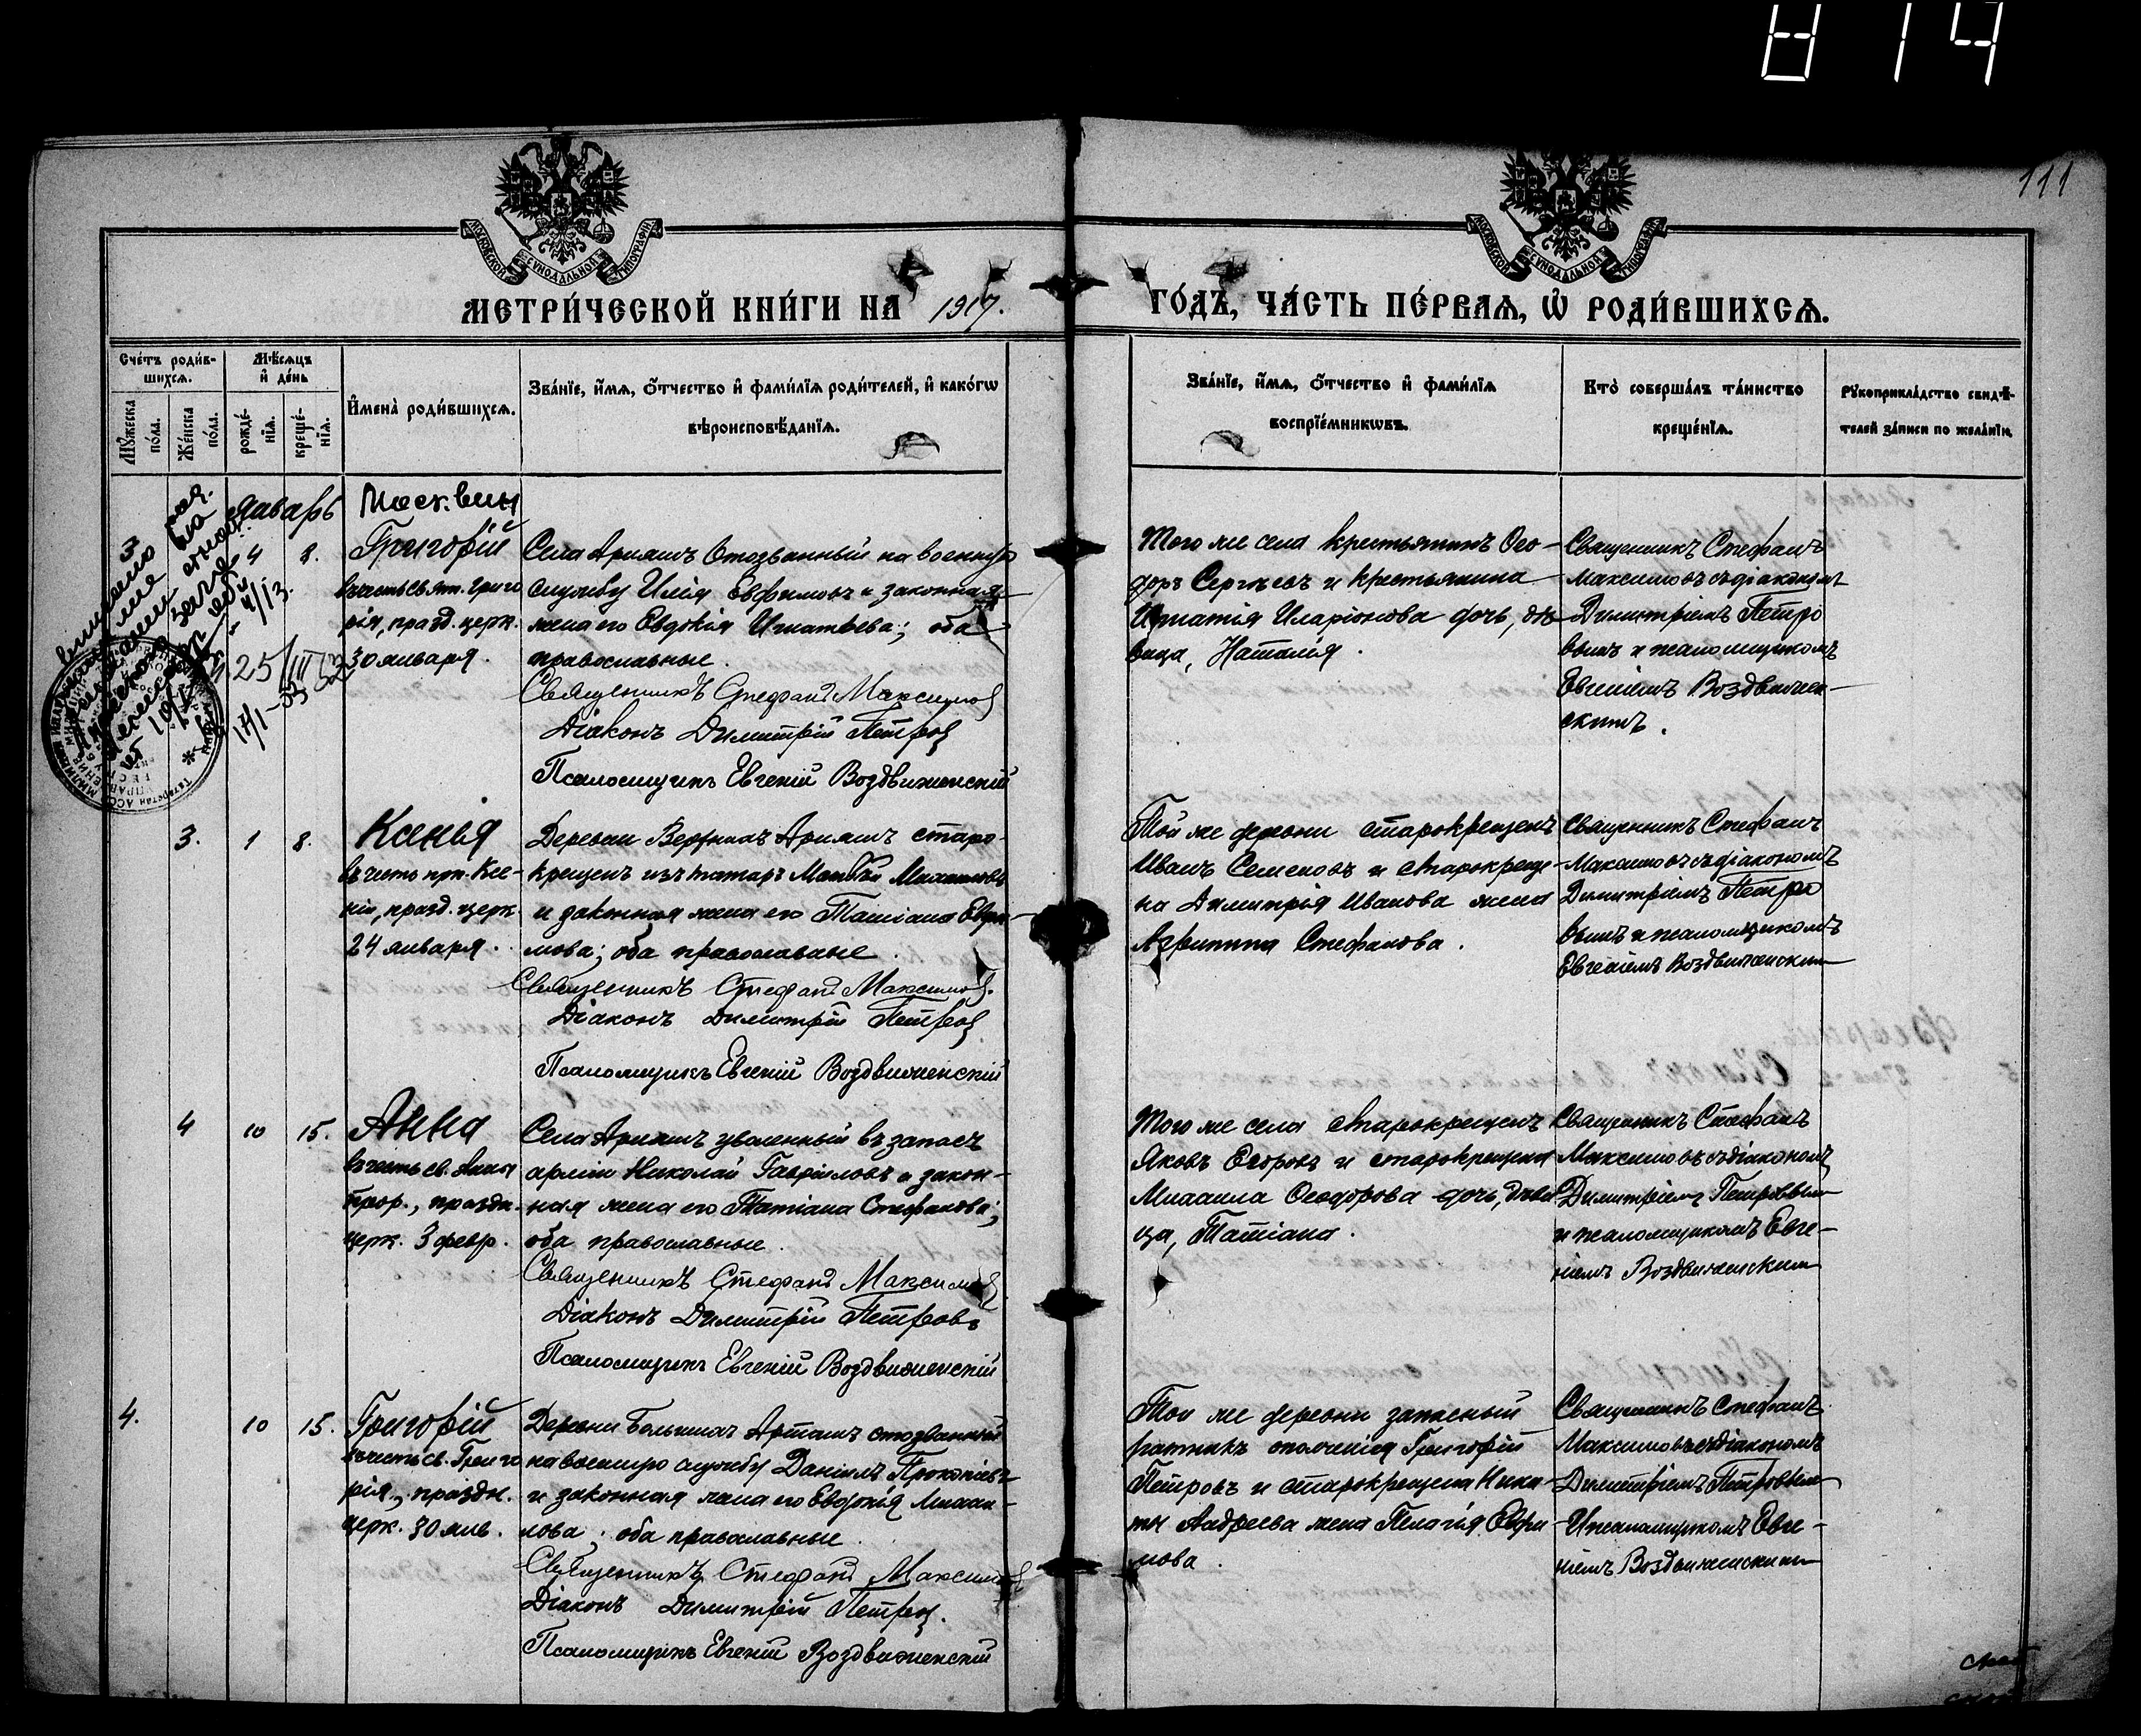 814
111
МОСКОВСКОЙ СѴНОДАЛЬНОЙ ТИПОГРАФІИ
МОСКОВСКОЙ СѴНОДАЛЬНОЙ ТИПОГРАФІИ
МЕТРИ́ЧЕСКОЙ КНИ́ГИ НА 1917. ГО́ДЪ, ЧА́СТЬ ПЕ́РВАѦ, Ѡ҆ РОДИ́ВШИХСѦ.
Сче́тъ роди́в-
шихсѧ.
Мѣ́сѧцъ
и҆ де́нь
Мꙋ́жеска
по́ла.
Же́нска
по́ла.
рожде́-
нїѧ.
креще́-
нїѧ.
И҆мена̀ роди́вшихсѧ.
Зва́нїе, и҆́мѧ, ѻ҆́тчество и҆ фами́лїѧ роди́телей, и҆ како́гѡ
вѣроисповѣ́данїѧ.
Зва́нїе, и҆́мѧ, ѻ҆́тчество и҆ фами́лїѧ
воспрїе́мникѡвъ.
Кто̀ соверша́лъ та́инство
креще́нїѧ.
Рꙋкоприкла́дство свидѣ́-
телей за́писи по жела́нїю.
Январь
Москвин
3
4 8.
Григорій
въ честь свят. Григо
рія, празд. церк.
30 января.
25/III 52
17/I-53
Села Аряшъ отозванный на военную
службу Илія Евфимовъ и законная
жена его Евдокія Игнатьева; оба
православные.
Священникъ Стефанъ Максимов
Діаконъ Димитрій Петров
Псаломщикъ Евгеній Воздвиженскій
Того же села крестьянинъ Ѳео-
доръ Сергѣевъ и крестьянина
Игнатія Иларіонова дочь, дѣ-
вица, Наталія.
Священникъ Стефанъ
Максимовъ съ діакономъ
Димитріемъ Петро
вымъ и псаломщикомъ
Евгеніемъ Воздвижен-
скимъ.
3. 1 8.
Ксенія
въ честь прп. Ксе-
ніи, празд. церк.
24 января.
Деревни Верхнихъ Аряшъ старо-
крещенъ изъ татаръ
и законная жена его Татіана Евфи-
мова; оба православные.
Священникъ Стефанъ Максимов.
Діаконъ Димитрій Петров
Псаломщикъ Евгеній Воздвиженскій
Той же деревни старокрещенъ
Иванъ Семеновъ и старокреще-
на Димитрія Иванова жена
Агрипина Стефанова.
Священникъ Стефанъ
Максимовъ съ діакономъ
Димитріемъ Петро
вымъ и псаломщикомъ
Евгеніемъ Воздвиженским
4 10 15.
Анна
въ честь св. Анны
прор., праздн.
церк. 3 февр.
Села Аряшъ уволенный въ запасъ
арміи Николай Гавриловъ и закон-
ная жена его Татіана Стефанова;
оба православные.
Священникъ Стефанъ Максимов
Діаконъ Димитрій Петровъ
Псаломщикъ Евгеній Воздвиженскій
Того же села старокрещенъ
Яковъ Егоровъ и старокрещена
Михаила Ѳеодорова дочь, дѣви
ца, Татіана.
Священникъ Стефанъ
Максимовъ съ діакономъ
Димитріемъ Петровым
и псаломщикомъ Евге-
ніемъ Воздвиженским
4. 10 15.
Григорій
въ честь св. Григо
рія, праздн.
церк. 30 янв.
Деревни отозванный
на военную службу Даніилъ Прокопіевъ
и законная жена его Евдокія Михаи-
лова; оба православные.
Священникъ Стефанъ Максимов
Діаконъ Димитрій Петров.
Псаломщикъ Евгеній Воздвиженскій
Той же деревни запасный
ратникъ ополченія Григорій
Петровъ и старокрещена Ники-
ты Андреева жена Пелагія Евфи-
мова.
Священникъ Стефанъ
Максимовъ съ діакономъ
Димитріемъ Петровым
И псаломщикомъ Евге-
ніемъ Воздвиженским